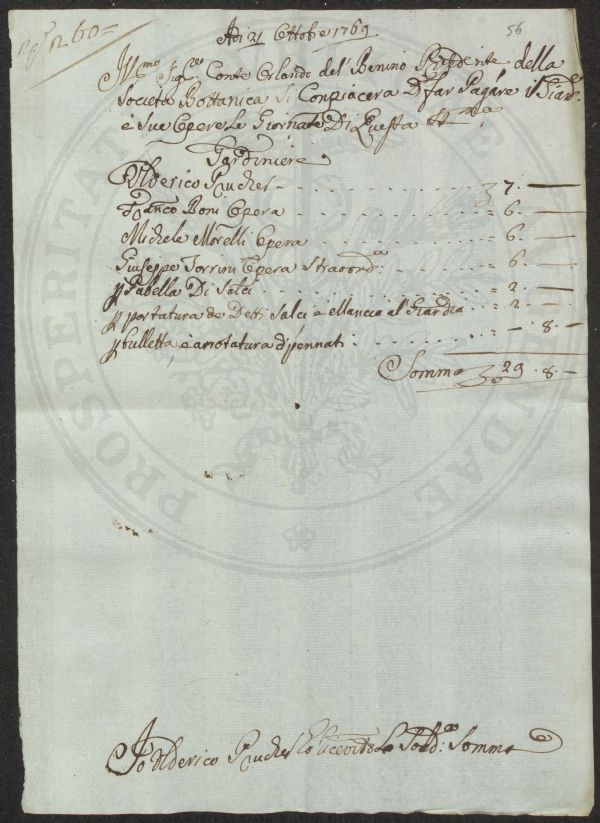 n. 60=
56
Adi 21 Ottobre 1769
Ill.mo Sig.re Conte Orlando del Benino Presidente della
Società Bottanica Si Conpiacerà Di far Pagare il Giard.
e Sue Opere Le Giornate Di Questa
Gardiniere
Ulderico Prucher - - - 7. —
Franco Boni Opera - - - = 6. —
Michele Morelli Opera - - - = 6. —
Giuseppe Torrini Opera Straord.a - - - = 6. —
p Gabella Di Salci - - - = 2. —
p portatura de Detti Salci e Mancia al Giardia - = 2. —
p bulletta, e arrotatura di pennati - - - = — 8. —
Somma 29. 8. —
Io Ulderico Prucher ò ricevuto La Sodd.a Somma
PROSPERITATI